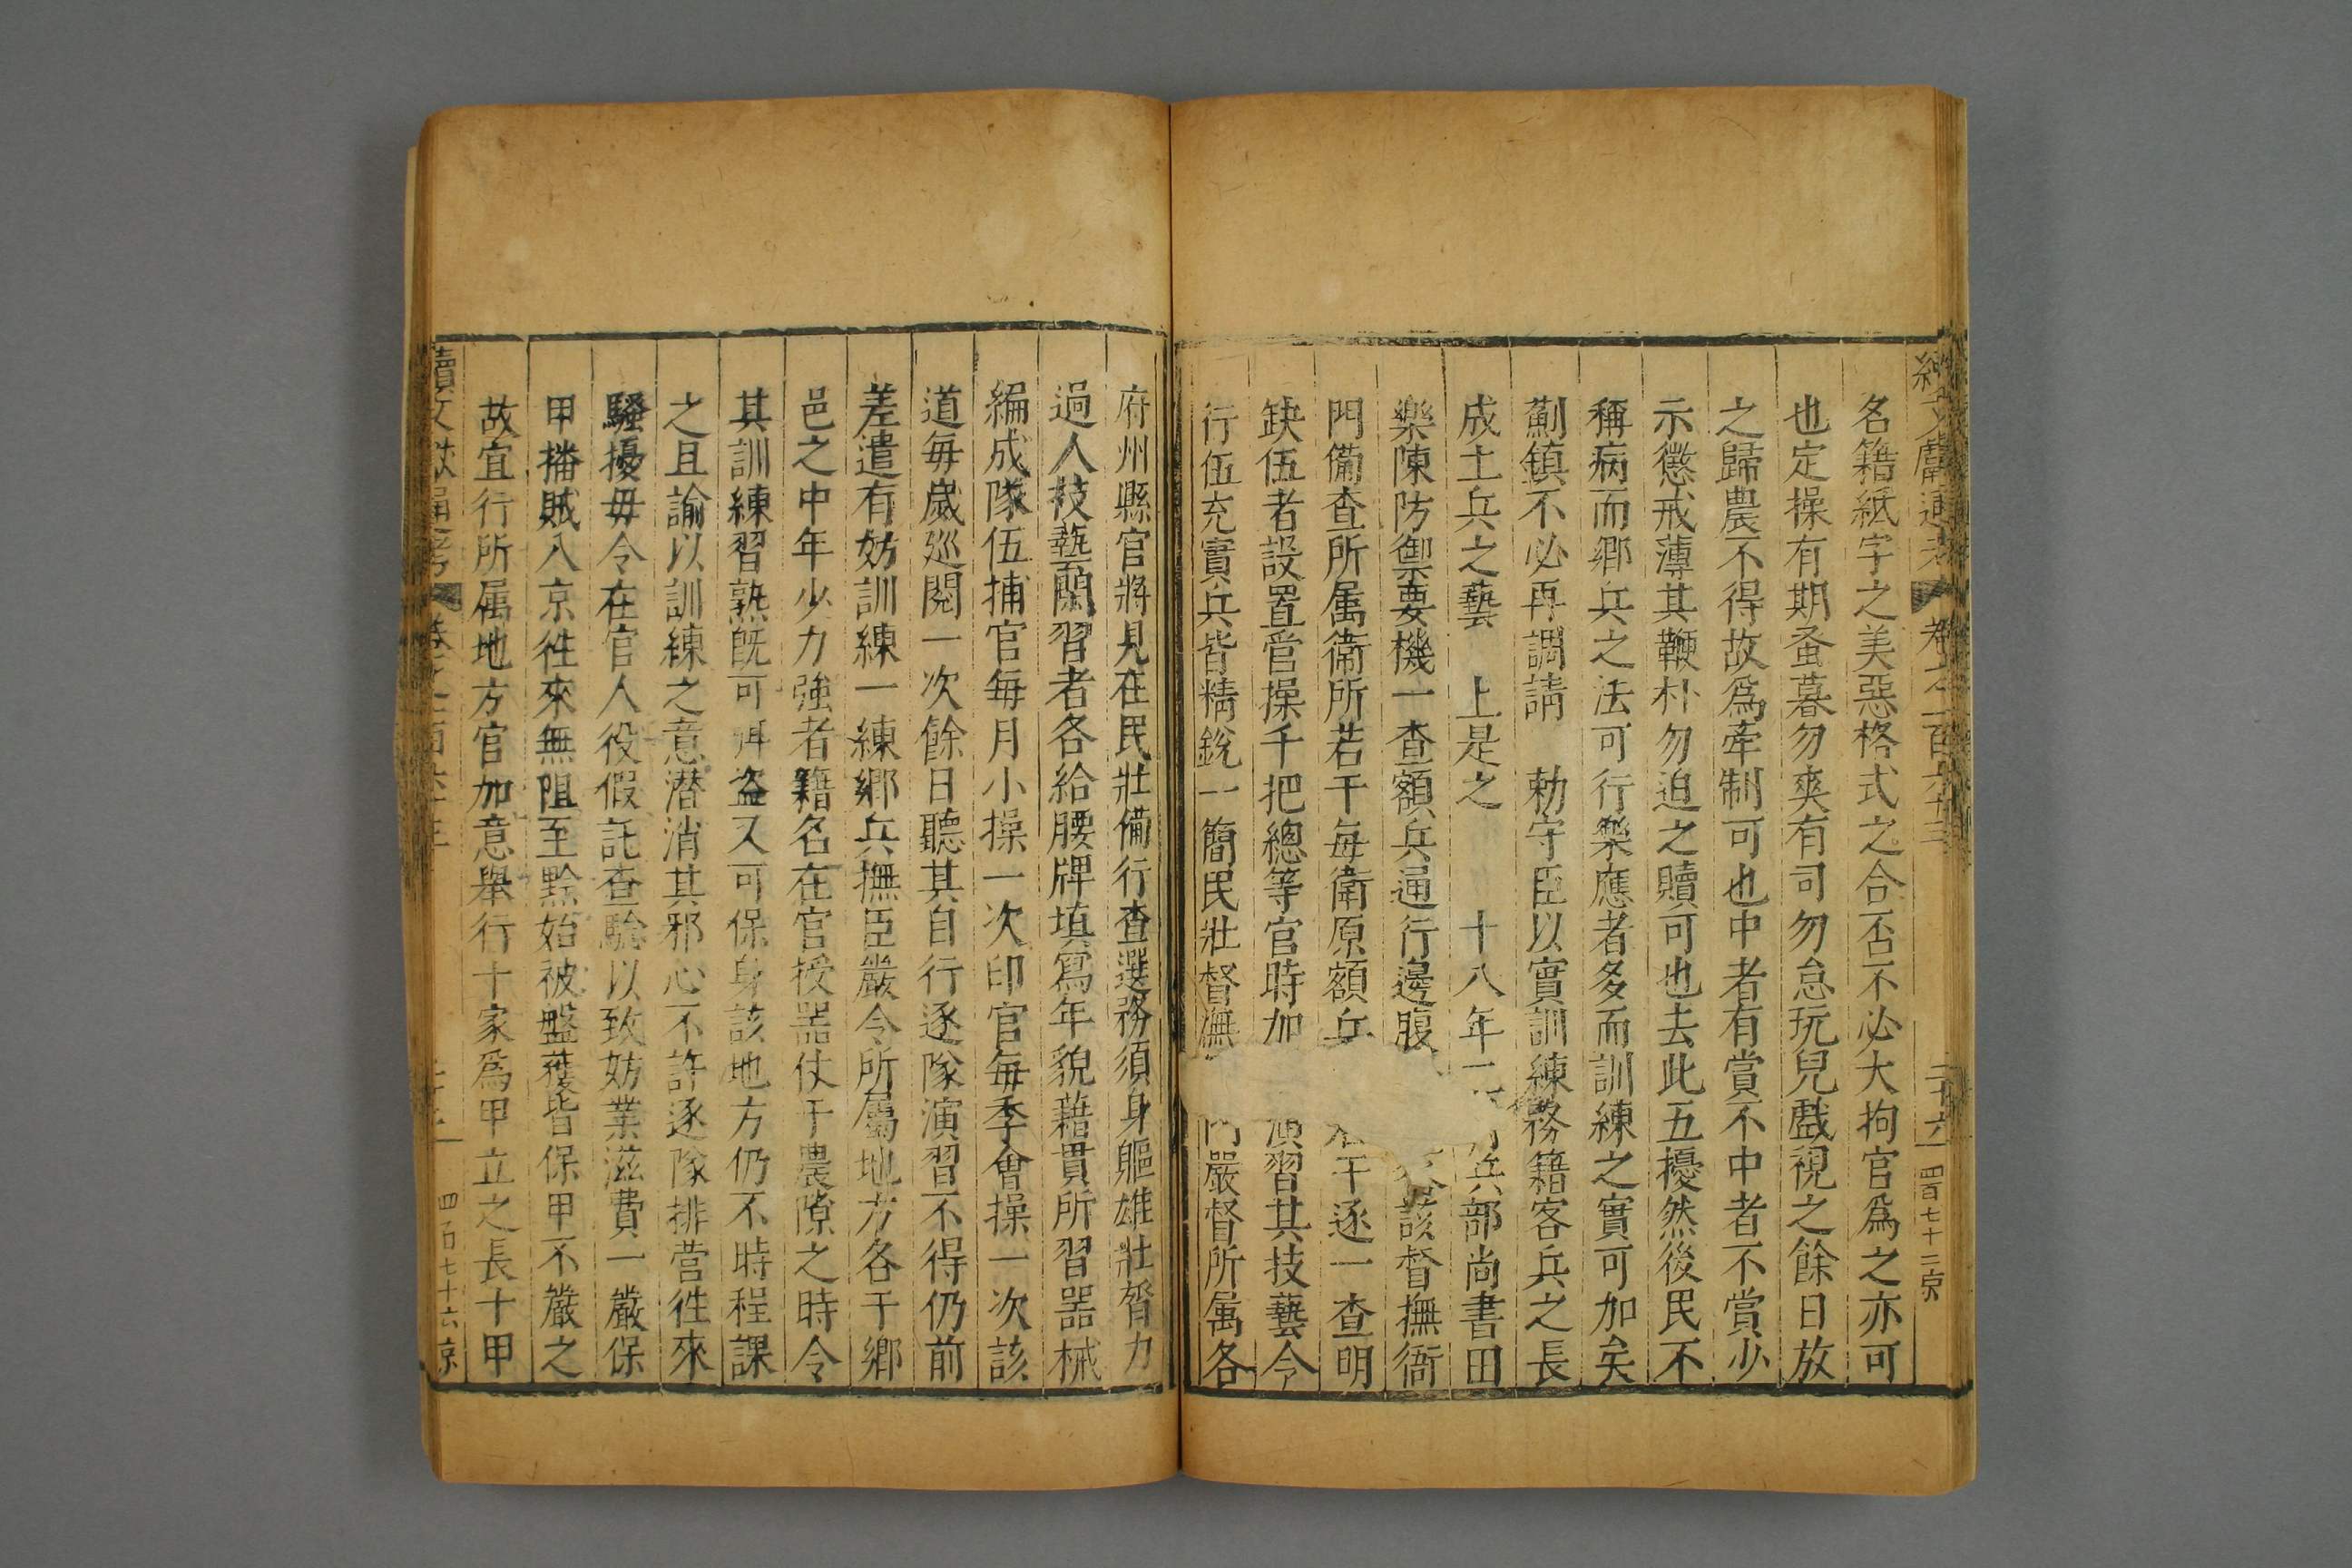 續文獻通考 卷之一百六十三 二十六 四百七十二 京
名籍紙字之美惡格式之合否不必大拘官爲之亦可
也定操有期蚤暮勿爽有司勿怠玩兒戲視之餘日放
之歸農不得故爲牽制可也中者有賞不中者不賞少
示懲戒薄其鞭朴勿迫之贖可也去此五擾然後民不
稱病而鄉兵之法可行樂應者多而訓練之實可加矣
薊鎮不必再調請 勅守臣以實訓練務籍客兵之長
成土兵之藝 上是之 十八年二 兵部尚書田
樂陳防禦要機一查額兵通行邊腹 該督撫衙
門備查所属衛所若干每衛原額兵 若干逐一查明
缺伍者設置营操千把總等官時加 演習其技藝令
行伍充實兵皆精銳一簡民壯督撫 門嚴督所属各
府州縣官將見在民壯備行查選務須身軀雄壯膂力
過人技藝閑習者各給腰牌填寫年貌藉貫所習噐械
編成隊伍捕官每月小操一次印官每季會操一次該
道每歲巡閱一次餘日聽其自行逐隊演習不得仍前
差遣有妨訓練一練鄉兵撫臣嚴令所屬地方各于鄉
邑之中年少力強者籍名在官授噐仗于農隙之時令
其訓練習熟既可弭盗又可保身該地方仍不時程課
之且諭以訓練之意潜消其邪心不許逐隊排营徃來
騷擾毋令在官人役假託查驗以致妨業滋費一嚴保
甲播賊入京徃來無阻至黔始被盤獲皆保甲不嚴之
故宜行所属地方官加意舉行十家爲甲立之長十甲
續文獻通考 卷之一百六十三 四百七十六 京